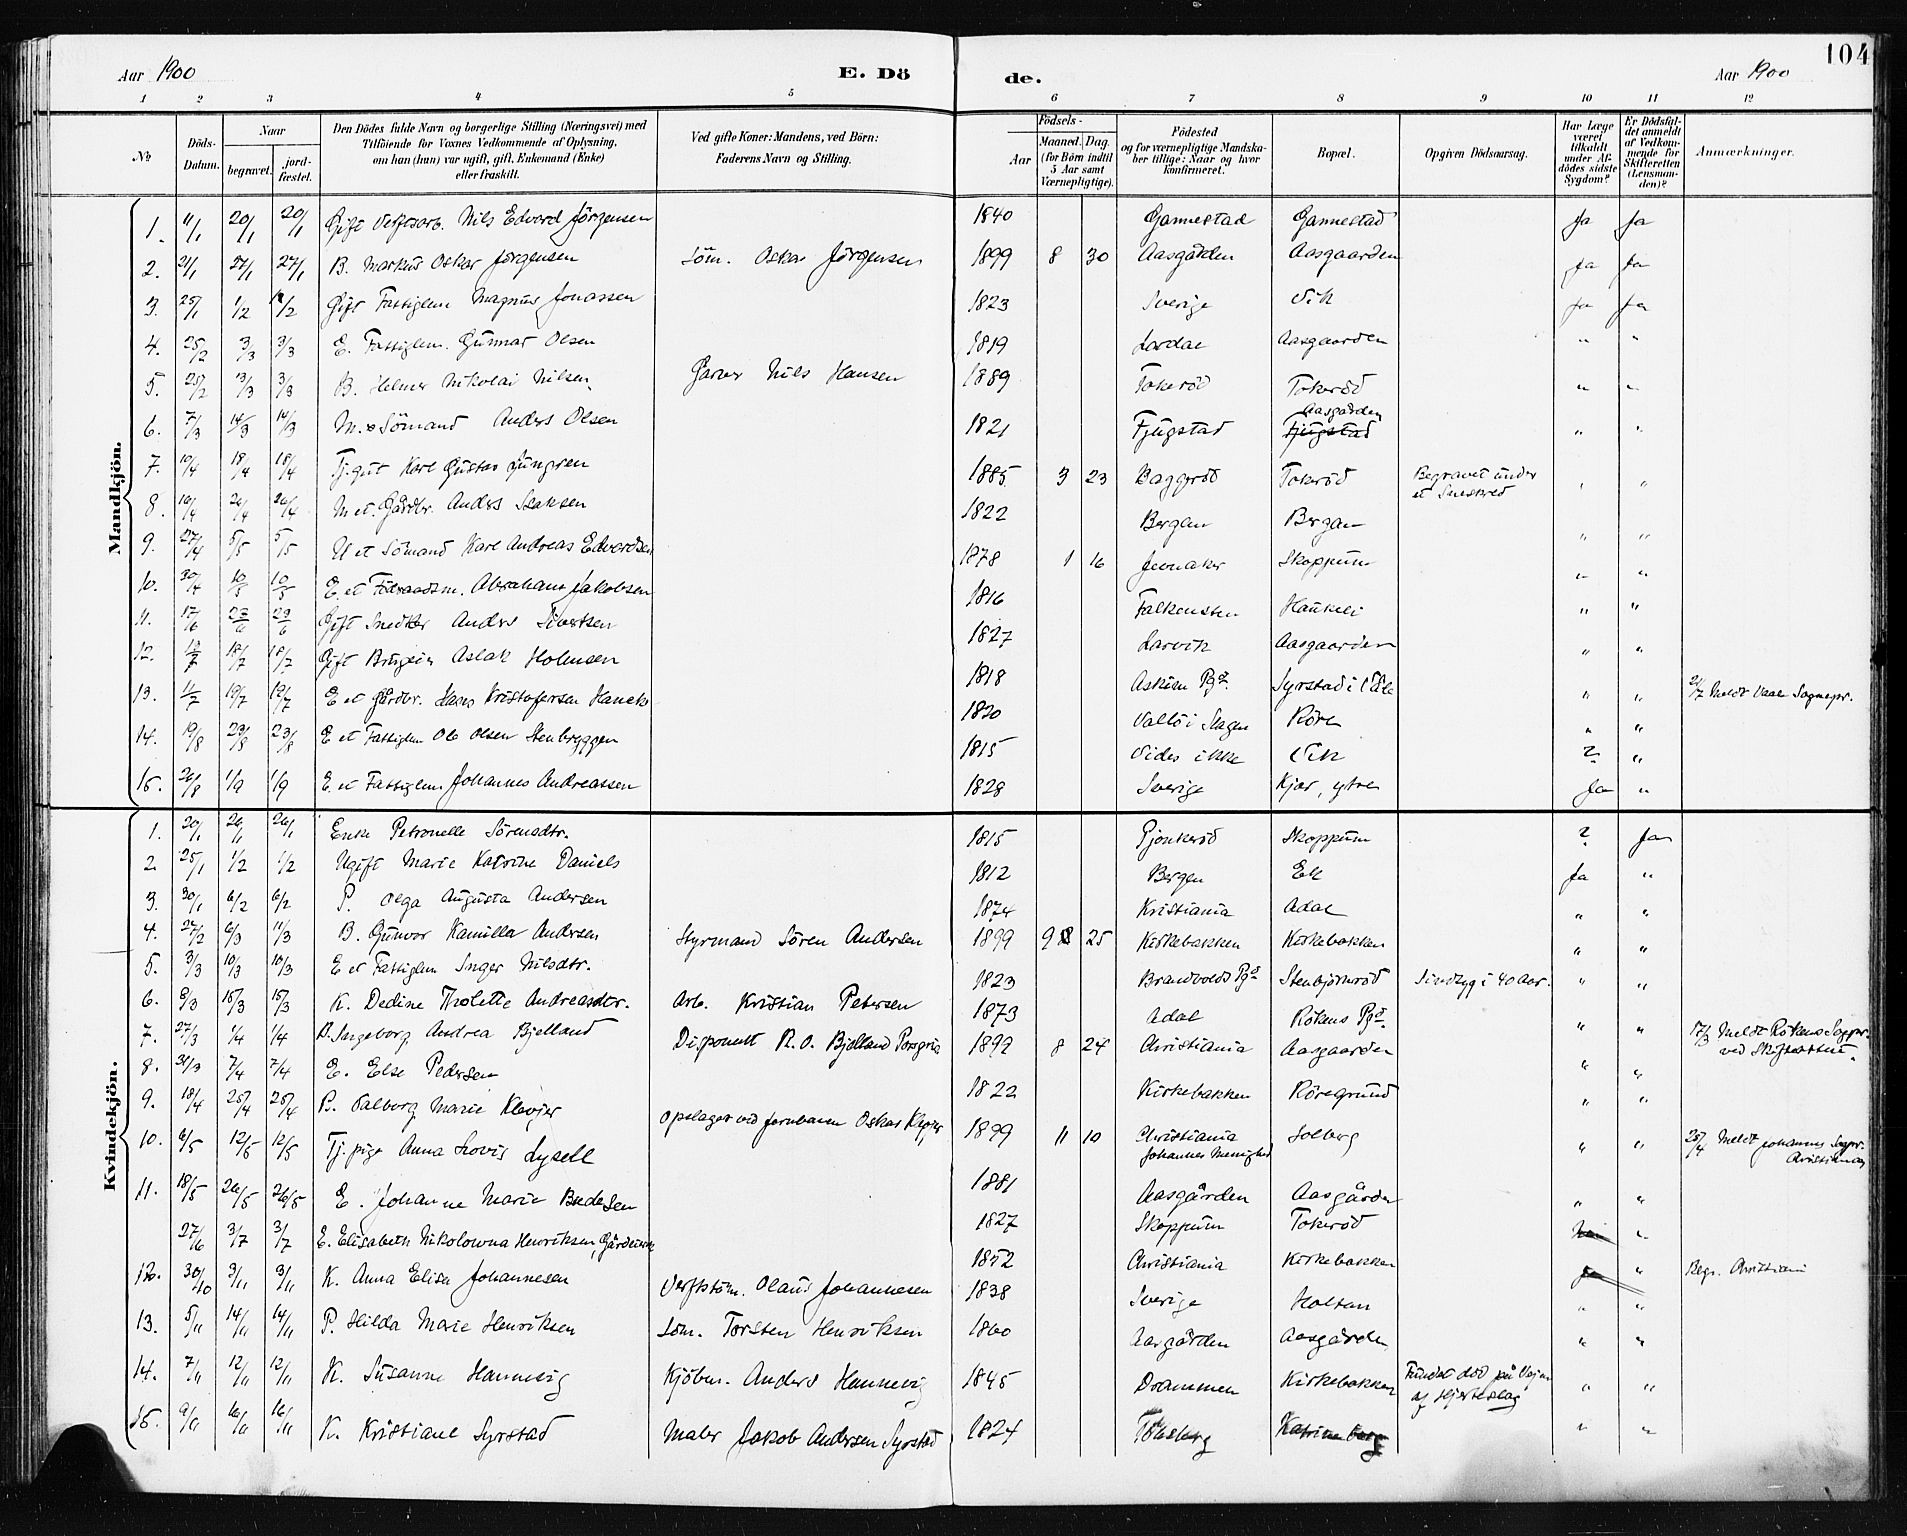 104
Aar 1900 E. Dö de. Aar 1900
1 2 3 4 5 6 7 8 9 10 11 12
No Döds-Datum. Naar begravet. jord-fæstet. Den Dödes fulde Navn og borgerlige Stilling (Næringsvei) med Tilföiende for Voxnes Vedkommende af Oplysning, om han (hun) var ugift, gift, Enkemand (Enke) eller fraskilt. Ved gifte Koner: Mandens, ved Börn: Faderens Navn og Stilling. Födsels- Aar Maaned. Dag. (for Börn indtil 5 Aar samt Værnepligtige). Födested og for værnepligtige Mandska-ber tillige: Naar og hvor konfirmeret. Bopæl. Opgiven Dödsaarsag. Har Læge været tilkaldt under Af-dödes sidste Sygdom? Er Dödsfal-det anmeldt af Vedkom-mende for Skifteretten (Lensman-den)? Anmærkninger.
Mandkjön.
1. 11/1 20/1 20/1 Gift Verftsarb. Nils Edvard Jörgensen 1840 Gannestad Gannestad Ja Ja
2. 21/1 27/1 27/1 B. Markus Oskar Jörgensen Söm. Oskar Jörgensen 1899 8 30 Aasgården Aasgaarden Ja Ja
3. 25/1 1/2 1/2 Gift Fattiglem Magnus Jonassen 1823 Sverige Vik Ja Ja
4. 25/2 3/3 3/3 E. Fattiglem. Gunnar Olsen 1819 Lardal Aasgaarden " "
5. 25/2 13/3 3/3 B. Helmer Nikolai Nilsen Garver Nils Hansen 1889 Tokeröd Tokeröd " "
6. 7/3 14/3 14/3 Sömand Anders Olsen 1821 Fjugstad Aasgården Fjugstad " "
7. 10/4 18/4 18/4 Tj.gut Karl Gustav Ljungren 1885 3 23 Baggeröd Tokeröd Begravet under et Sneskred " "
8. 19/4 26/4 26/4 Gårdbr. Anders Isaksen 1822 Bergan Bergan " "
9. 27/4 5/5 5/5 U et Sömand Karl Andreas Edvardsen 1878 1 16 Jevnaker Skoppum " "
10. 30/4 10/5 10/5 E. et Föderaadsm. Abraham Jakobsen 1816 Falkensten Haukeli " "
11. 17/6 23/6 23/6 Gift Snedker Anders Sivertsen 1827 Larvik Aasgaarden " "
12. 12/7 18/7 18/7 Gift Brugeier Aslak Holmsen 1818 Askim Pgd. Syrstad i Våle " "
13. 11/7 19/7 19/7 E et Gårdbr. Hans Kristofersen 1820 Vallö i Slagen Rören " " 21/7 Meldt Vaale Sognepr.
14. 19/8 23/8 23/8 E et Fattiglem Ole Olsen Stenbryggen 1815 Vides ikke Vik ? "
15. 26/8 1/9 1/9 E. et Fattiglem Johannes Andreassen 1828 Sverige Kjær, ytre Ja "
Kvindekjön.
1. 20/1 26/1 26/1 Enke Petronelle Sörensdtr. 1815 Pjonkeröd Skoppum ? Ja
2. 25/1 1/2 1/2 Ugift Marie Katrine Daniels 1812 Bergen Ek Ja "
3. 30/1 6/2 6/2 P. Olga Augusta Andersen 1874 Kristiania Adal " "
4. 27/2 6/3 11/3 B. Gunvor Kamilla Andersen Styrmand Sören Andersen 1899 9 8 25 Kirkebakken Kirkebakken " "
5. 3/3 10/3 10/3 E et Fattiglem Inger Nilsdtr. 1823 Brandvolds Pgd Stenbjörnröd Sindsyg i 40 Aar. " "
6. 9/3 15/3 15/3 K. Dedine Tholette Andreasdtr. Arb. Kristian Petersen 1873 Adal Rökens Pgd. " "
7. 27/3 1/4 1/4 B. Ingeborg Andrea Bjelland Disponent R. O. Bjelland Porsgrin 1892 8 24 Christiania Aasgaarden " " 17/3 Meldt Rökens Sogpr. ved Skifteretten.
8. 31/3 7/4 7/4 E. Else Pedersen 1822 Kirkebakken Röregrund " "
9. 18/4 25/4 25/4 B. Valborg Marie Klevjer Opslager ved Jernbanen Oskar Klevjer 1899 11 10 Christiania Johannes Menighed Solberg " " 25/4 Meldt Johannes Sogpr. Kristiania
10. 6/5 12/5 12/5 Tj. pige Anna Lovis Lysell 1881 Aasgården Aasgården " "
11. 18/5 26/5 26/5 E. Johanne Marie Bredesen 1827 Skoppum Tokeröd Nei "
27/6 3/7 3/7 E. Elisabeth Nikolowna Henriksen, Gårdeierske 1852 Christiania Kirkebakken Ja " Begr. Christiania
12. 30/10 3/11 3/11 K. Anna Elise Johannesen Verftstöm. Olaus Johannesen 1838 Sverige Holtan " "
13. 5/11 14/11 14/11 P. Hilda Marie Henriksen Söm. Torsten Henriksen 1860 Aasgården Aasgården " "
14. 7/11 12/11 12/11 K. Susanne Hannevig Kjöbm. Anders Hannevig 1845 Drammen Kirkebakken Fundet död på Veien af Hjerteslag " "
15. 9/11 16/11 16/11 K. Kristiane Syrstad Maler Jakob Andersen Syrstad 1824 Tönsberg Katrineborg " "